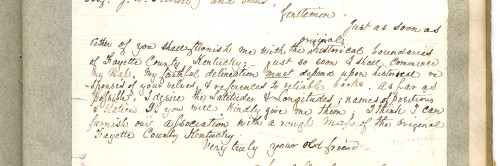 Gentlemen.
Just as soon as
original
either of you shall furnish me with the historical boundaries
of Fayette County, Kentucky; just so soon I shall commence
my Map. My faithful delineation must depend upon historical re
sponses of your selves, & references to reliable books. As far as
possible, I desire the Latitudes & Longitudes; names of positions
If you will kindly give me them, I think I can
furnish our association with a rough map of the original
Fayette County Kentucky.
Very truly your old friend